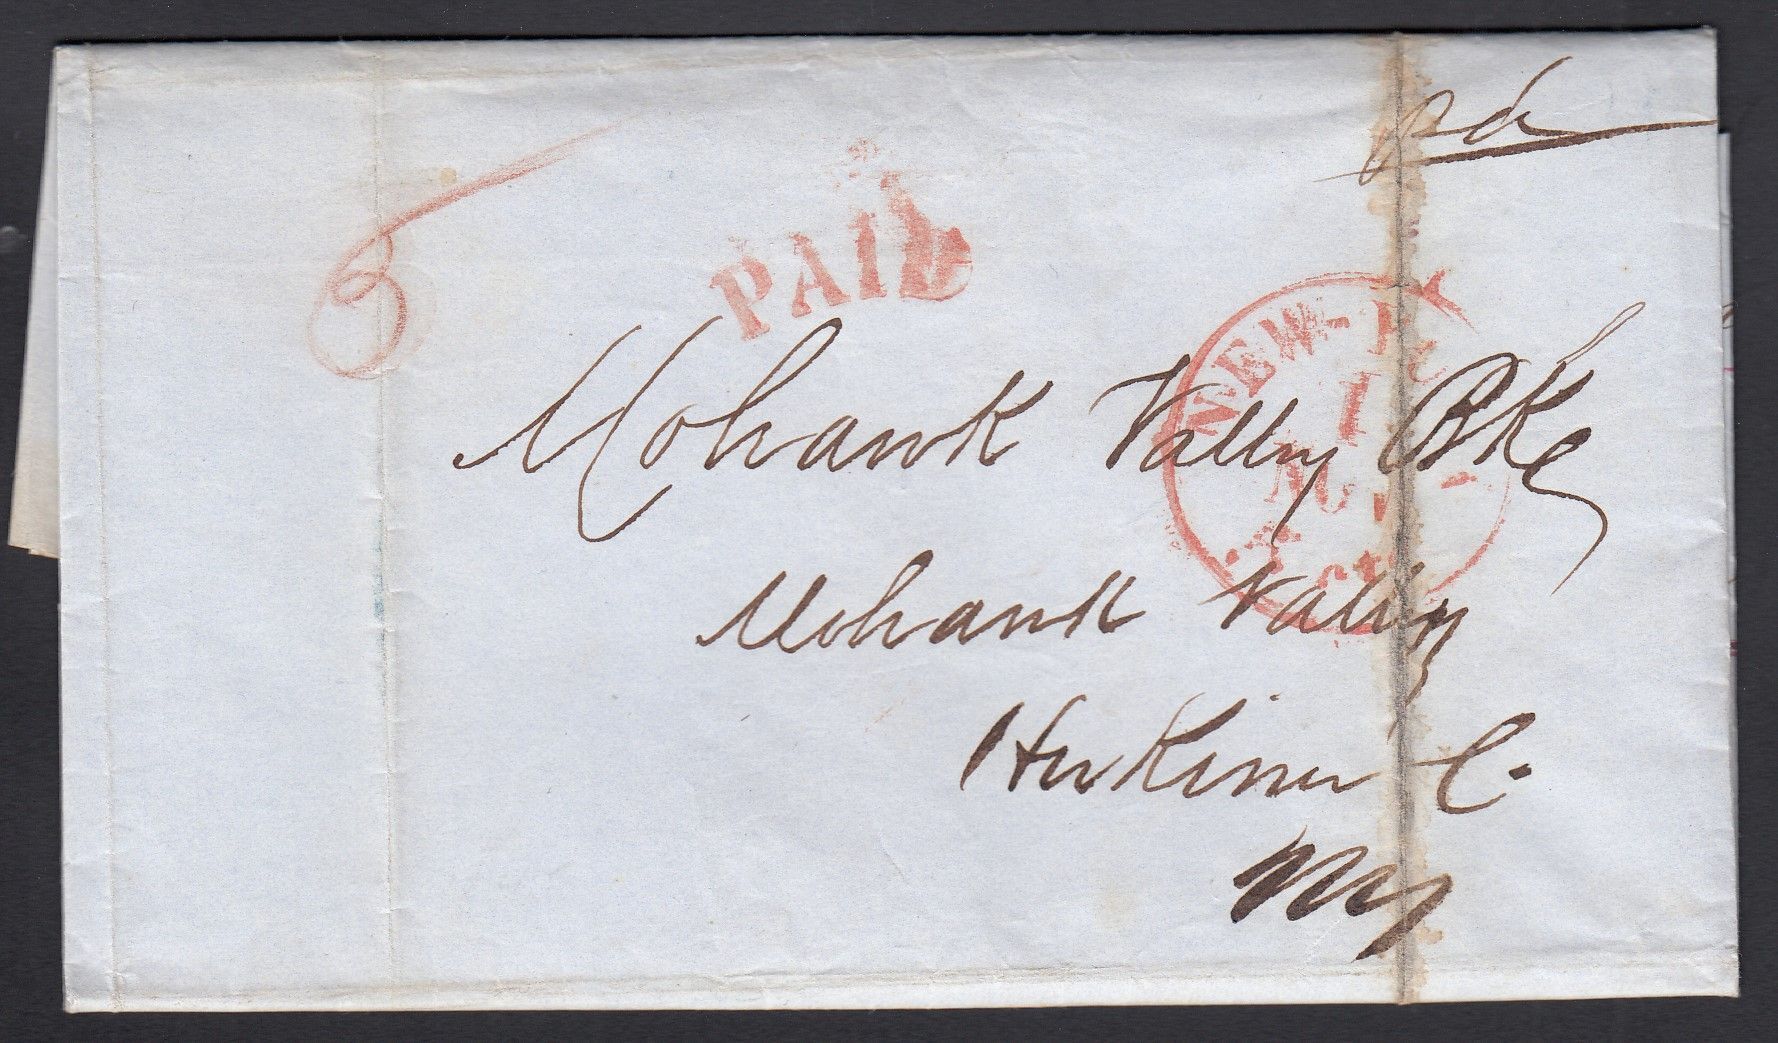 pd
PAID
3
NEW-
1
Mohawk Valley Bk
Mohawk Valley
Herkimer C.
NY